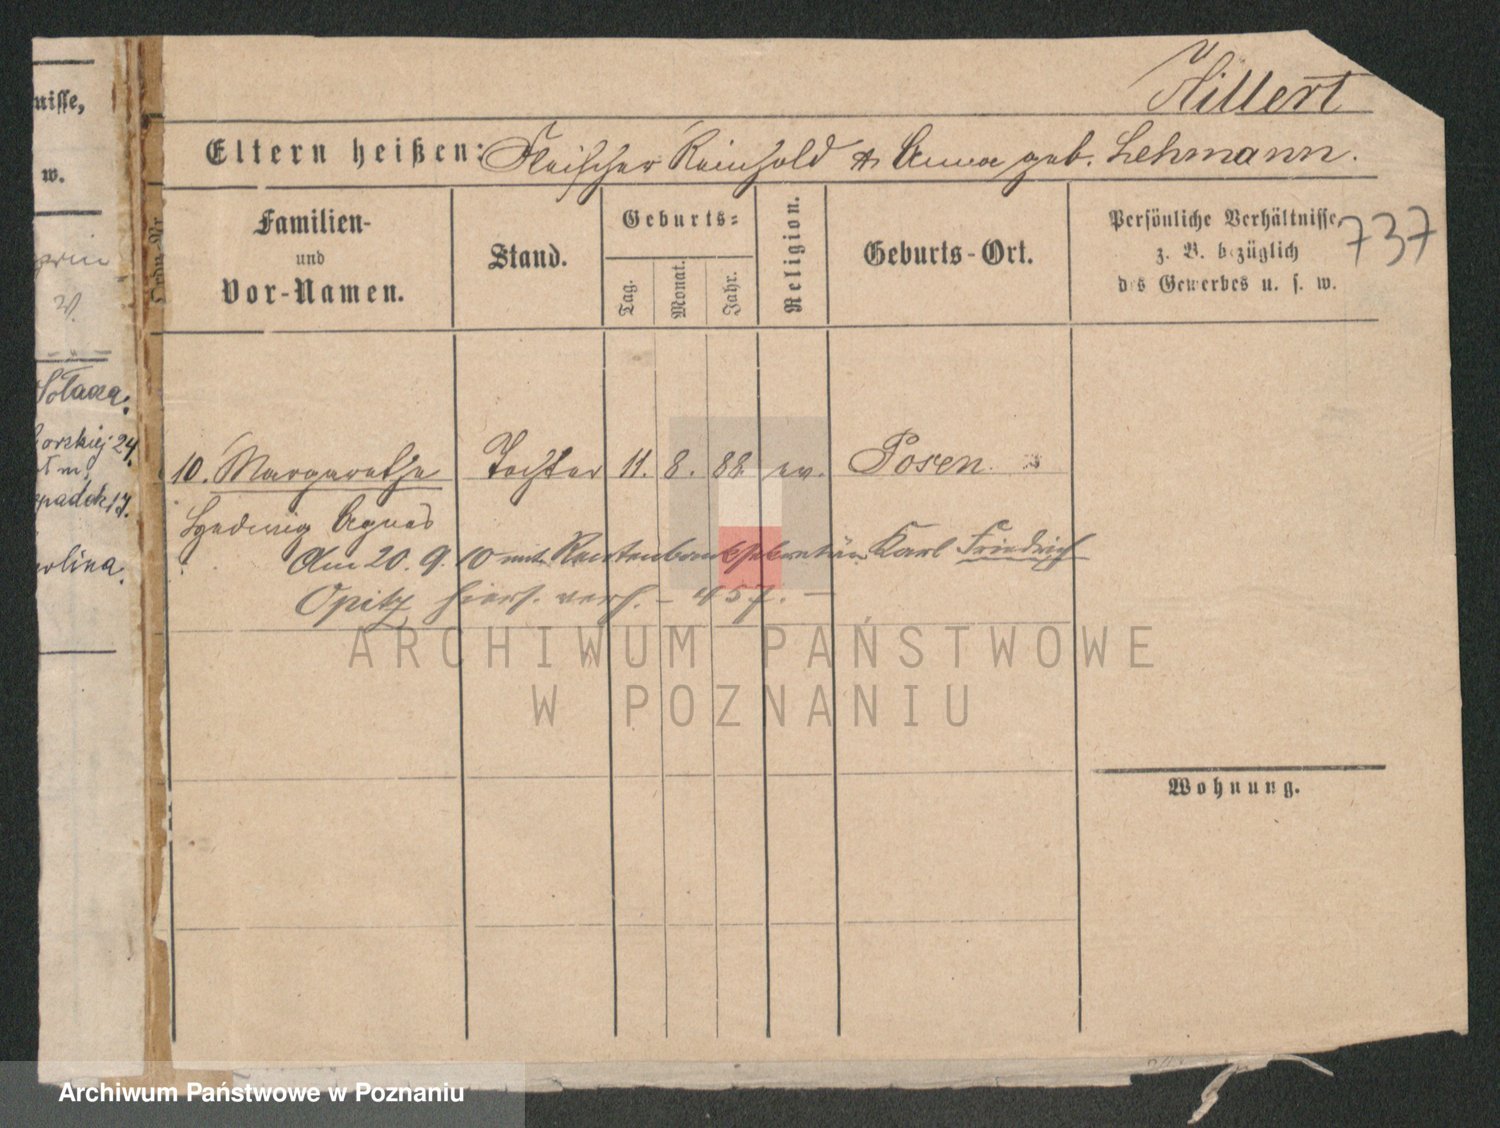 Hillert
Eltern heißen: Fleischer Reinhold & Anna geb. Lehmann.
nisse,
w.
Ordn. Nr.
Familien-
und
Vor-Namen.
Stand.
Geburts-
Tag.
Monat.
Jahr.
Religion.
Geburts-Ort.
Persönliche Verhältnisse,
z. B. bezüglich
des Gewerbes u. s. w.
737
Sołacza.
24.
17.
10. Margarethe Tochter 11. 8. 88. ev. Posen
Hedwig Agnes
Am 20. 9. 10 mit Rentenbanksekretär Karl Friedrich
Opitz hiers. verh. – 457. –
ARCHIWUM PAŃSTWOWE
W POZNANIU
Wohnung.
Archiwum Państwowe w Poznaniu